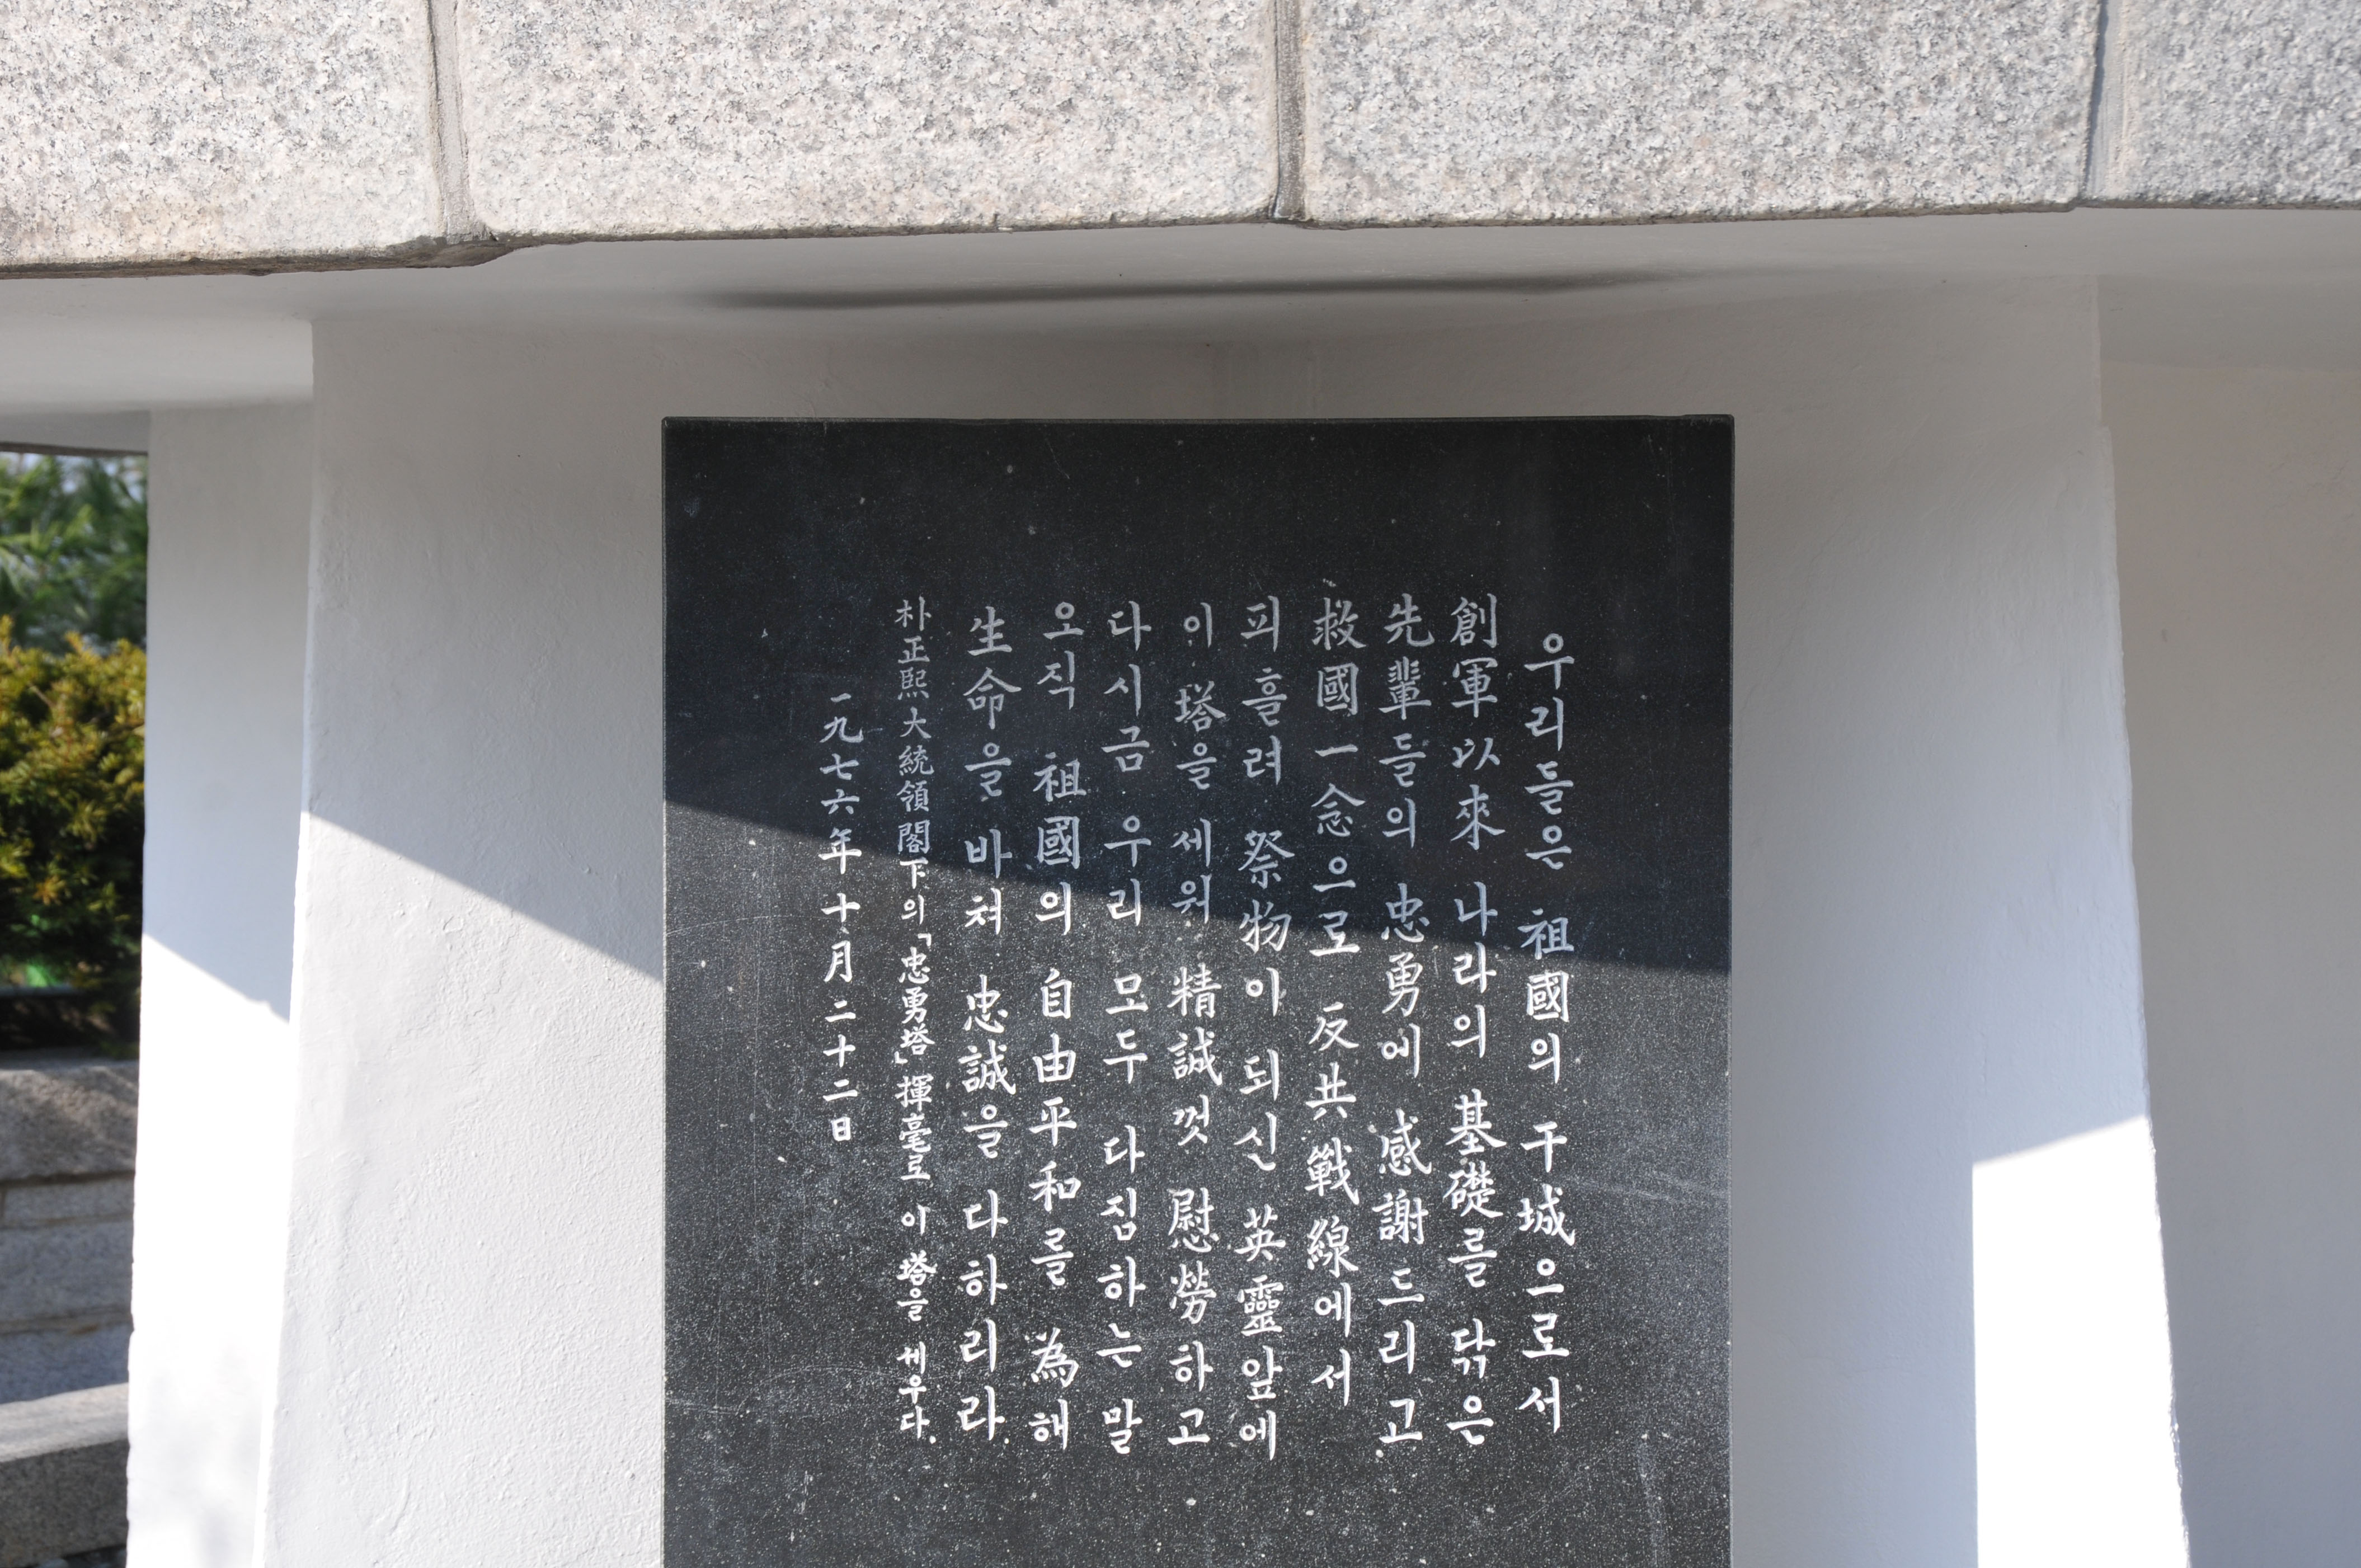 우리들은 祖國의 干城으로서
創軍以來 나라의 基礎를 닦은
先輩들의 忠勇에 感謝드리고
救國一念으로 反共戰線에서
피흘려 祭物이 되신 英靈앞에
이 塔을 세워 精誠껏 慰勞하고
다시금 우리 모두 다짐하는 말
오직 祖國의 自由平和를 為해
生命을 바쳐 忠誠을 다하리라.
朴正熙大統領閣下의「忠勇塔」揮毫로 이 塔을 세우다.
一九七六年十月二十二日